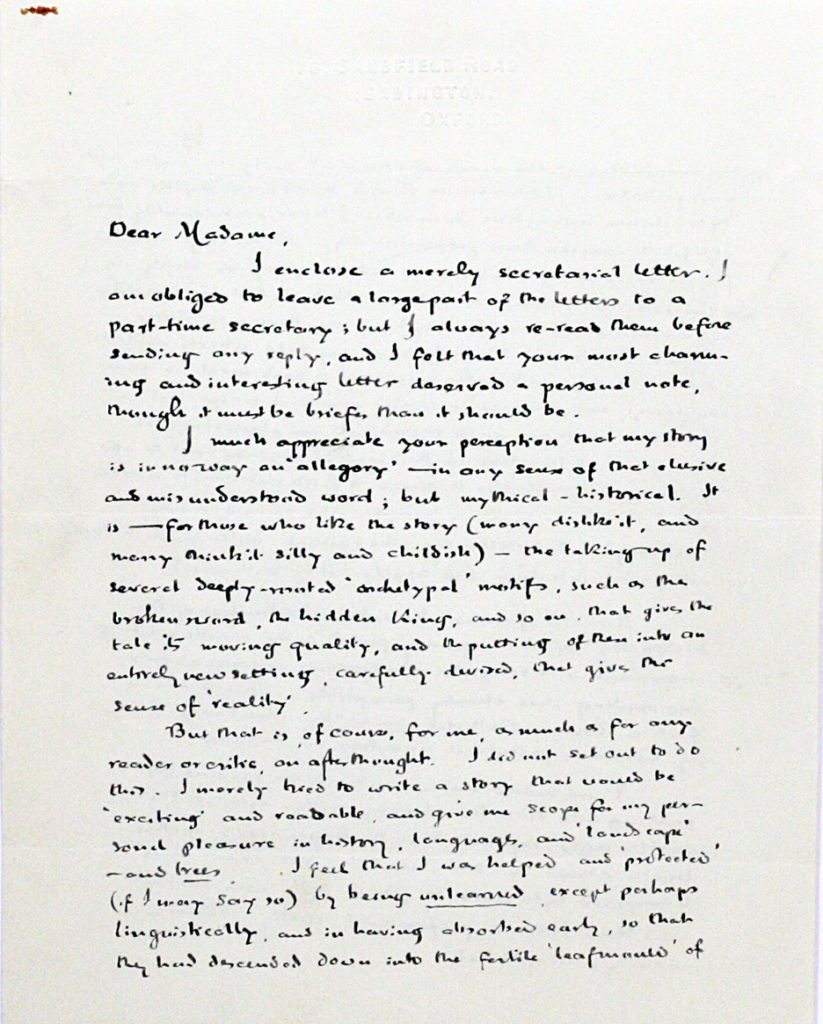 SANDFIELD ROAD
HEADINGTON,
OXFORD
Dear Madame,
I enclose a merely secretarial letter. I
am obliged to leave a large part of the letters to a
part-time secretary; but I always re-read them before
sending any reply, and I felt that your most charm-
ing and interesting letter deserved a personal note,
though it must be briefer than it should be.
I much appreciate your perception that my story
is in no way an 'allegory' — in any sense of that elusive
and misunderstood word; but mythical - historical. It
is — for those who like the story (many dislike it, and
many think it silly and childish) — the taking up of
several deeply-rooted 'archetypal' motifs, such as the
broken sword, the hidden King, and so on, that gives the
tale its moving quality, and the putting of them into an
entirely new setting, carefully devised, that gives the
sense of 'reality'.
But that is, of course, for me, as much as for any
reader or critic, an afterthought. I did not set out to do
this. I merely tried to write a story that would be
'exciting' and readable, and give me scope for my per-
sonal pleasure in history, languages, and 'landscape'
— and trees. I feel that I was helped and 'protected'
(if I may say so) by being unlearned, except perhaps
linguistically, and in having absorbed early, so that
they had descended down into the fertile 'leafmould' of